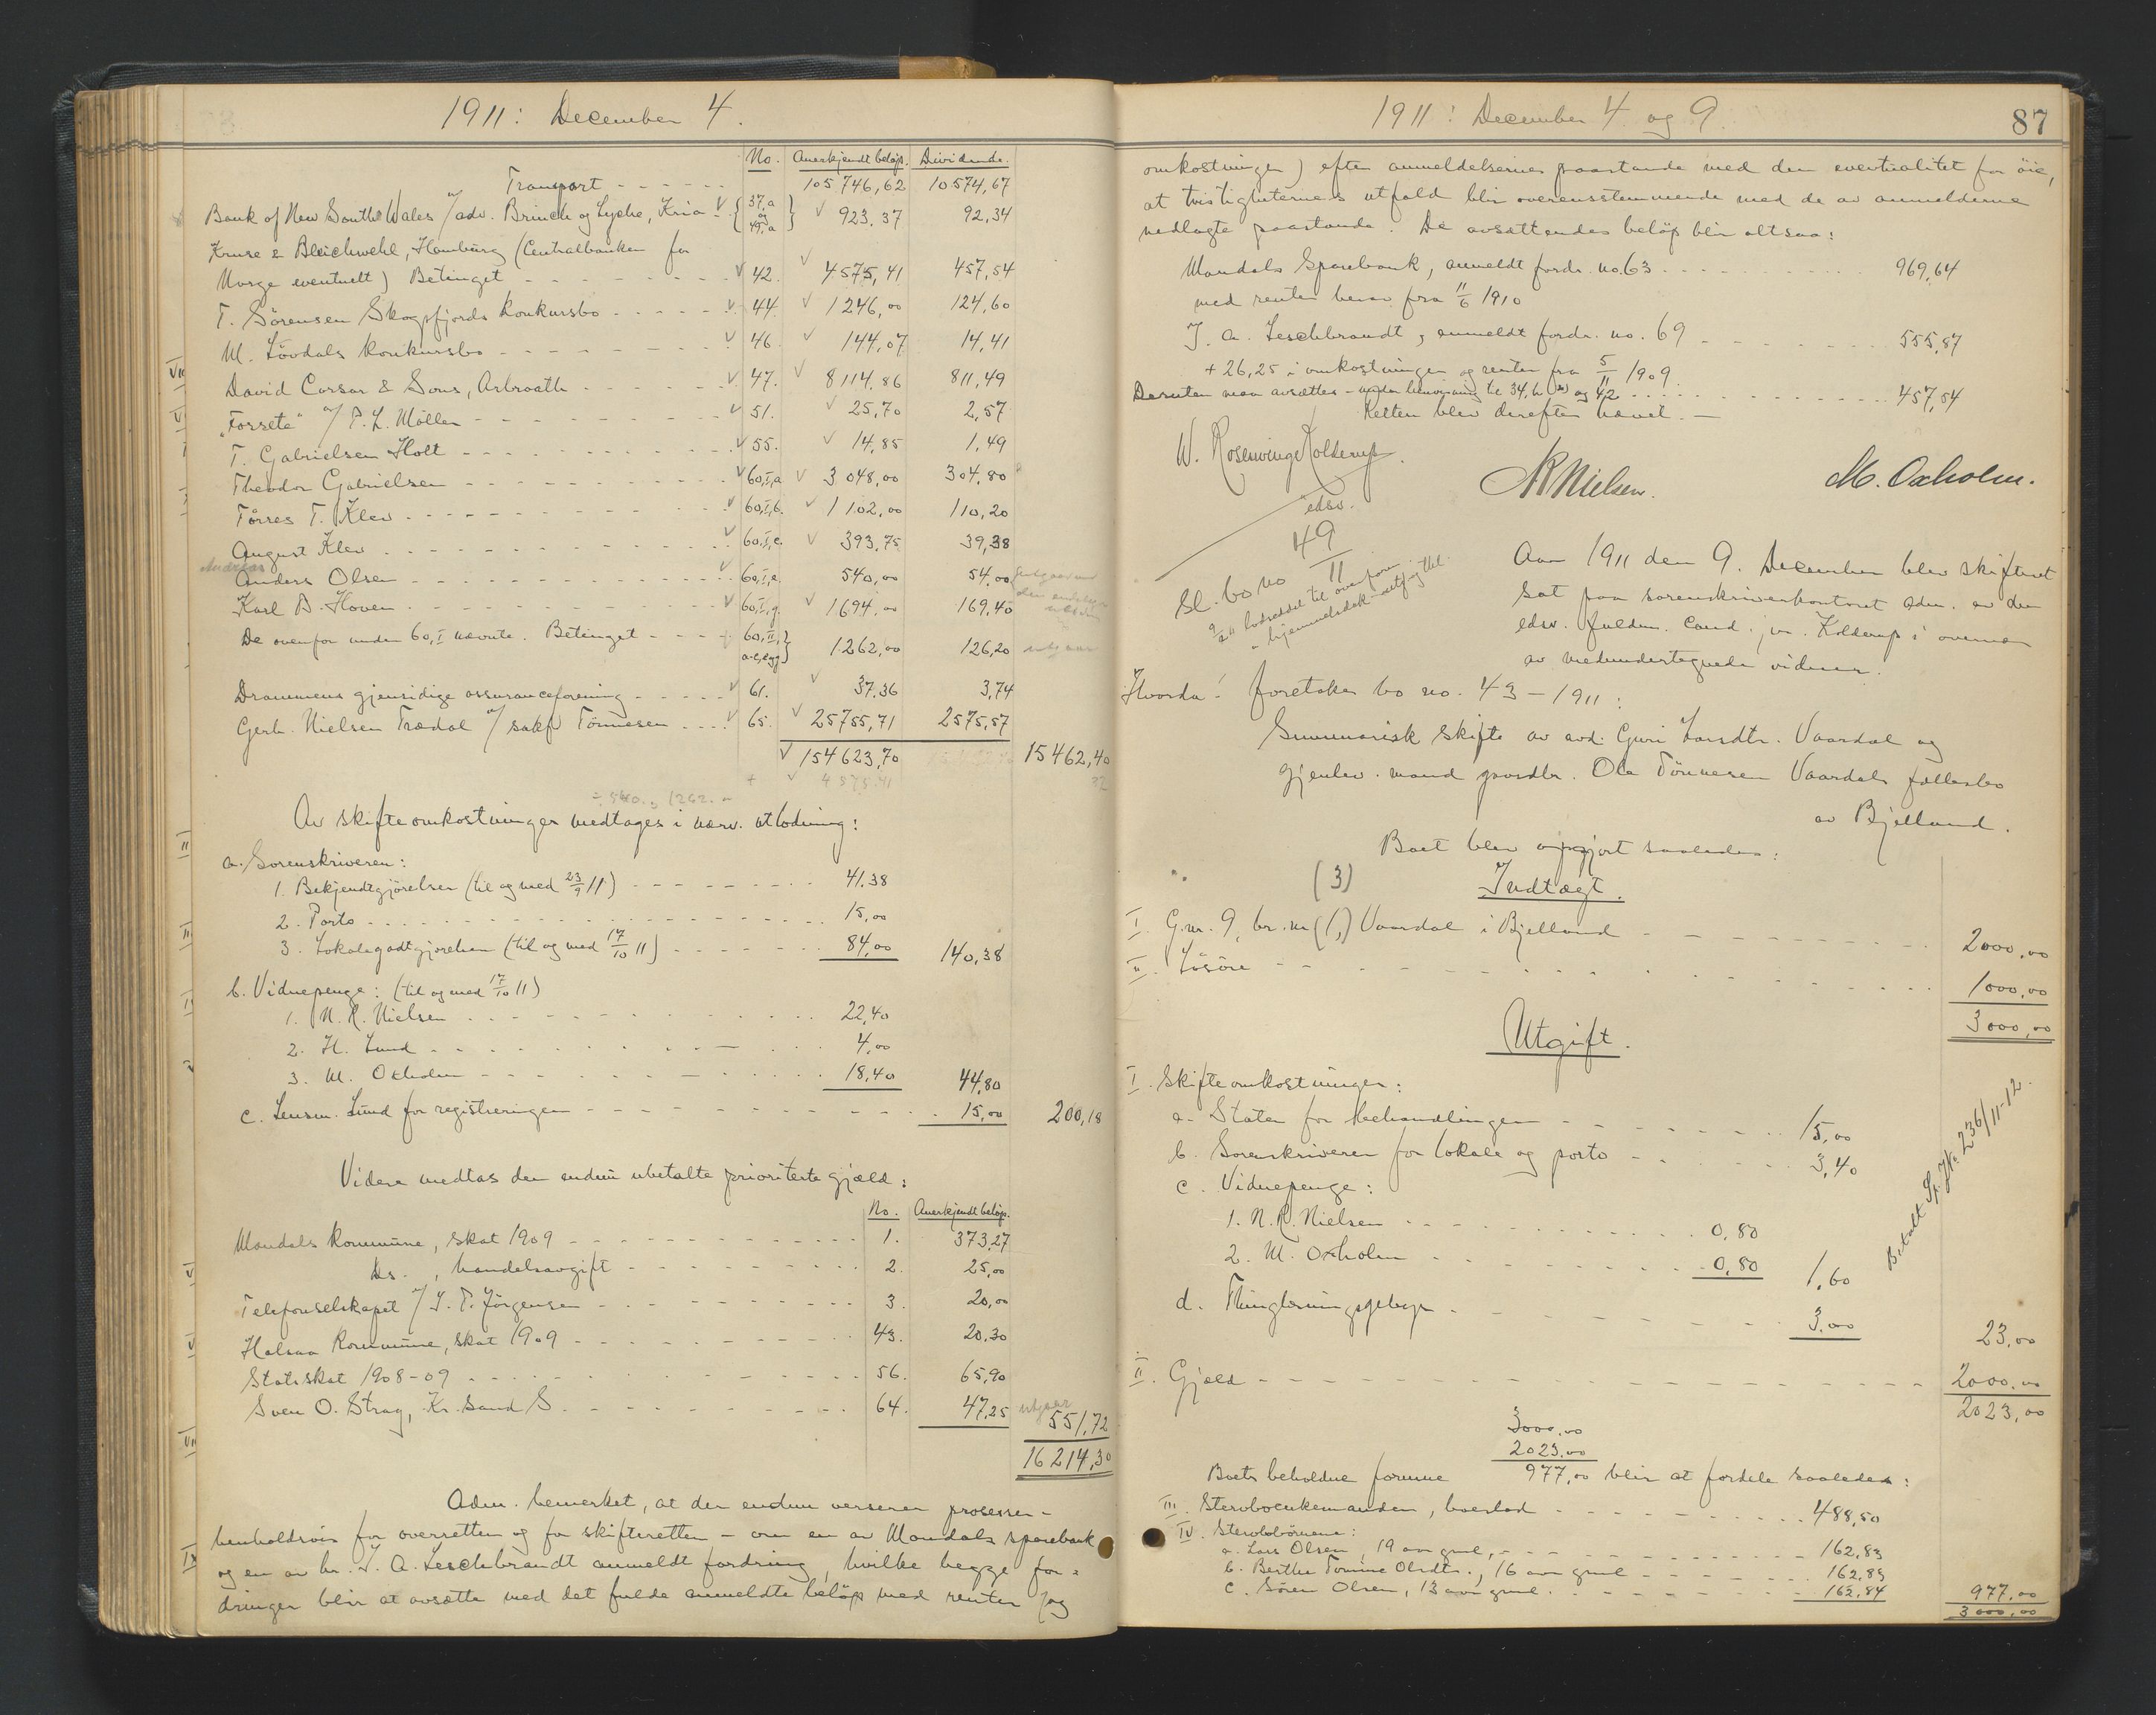 1911: December 4.
No. Anerkjendt beløp. Dividende.
Transport 105746,62 10574,67
Bank of New South Wales v/ adv. Brinch og Lyche, Kria { 37,a og 45,a } 923,37 92,34
Kruse & Bleichwehl, Hamburg (Centralbanken for
Norge eventuelt) Betinget 42. 4575,41 457,54
T. Sörensen Skogsfjords konkursbo 44. 1246,00 124,60
M. Lövdals konkursbo 46. 144,07 14,41
David Corsar & Sons, Arbroath 47. 8114,86 811,49
"Forseta" v/ P. L. Möller 51. 25,70 2,57
T. Gabrielsen Holt 55. 14,85 1,49
Theodor Gabrielsen 60,I,a 3048,00 304,80
Törres T. Klev 60,I,b. 1102,00 110,20
August Klev 60,I,c. 393,75 39,38
Andreas
Anders Olsen 60,I,e. 540,00 54,00
Karl B. Hoven 60,I,g. 1694,00 169,40
De ovenfor under 60,I nævnte. Betinget 60,II, a-c, e og g } 1262,00 126,20 utgaar
Drammens gjensidige assuranceforening 61. 37,36 3,74
Gerh. Nielsen Trædal v/ sakf. Tönnesen 65. 25755,71 2575,57
154623,70 15462,40
+ 4575.41 32
÷ 540., 1262.-
Av skifteomkostninger medtages i nærv. utlodning:
a. Sorenskriveren:
1. Bekjendtgjörelser (til og med 23/9 11) 41.38
2. Porto 15,00
3. Lokalegodtgjörelsen (til og med 17/10 11) 84,00 140,38
b. Vidnepenge: (til og med 17/10 11)
1. N. R. Nielsen 22,40
2. H. Lund 4,00
3. M. Oxholm 18,40 44,80
c. Lensm. Lund for registreringen 15,00 200,18
Videre medtas den endnu ubetalte prioriterte gjæld:
No. Anerkjendt beløp.
Mandals kommune, skat 1909 1. 373,27
ds. , handelsavgift 2. 25,00
Telefonselskapet v/ S. T. Jörgensen 3. 20,00
Halsaa kommune, skat 1909 43. 20,30
Statsskat 1908-09 56. 65,90
Sven O. Stray, Kr.sand S. 64. 47,25 utgaar 551,72
16214,30
Adm. bemerket, at der endnu verserer prosesser -
henholdsvis for overretten og for skifteretten - om en av Mandals sparebank
og en av hr. J. A. Leschbrandt anmeldt fordring, hvilke begge for-
dringer blir at avsætte med det fulde anmeldte beløp med renter (og
1911: December 4 og 9. 87
omkostninger) efter anmeldelsernes paastande med den eventualitet for öie,
at tvistigheternes utfald blir overensstemmende med de av anmelderne
nedlagte paastande. De avsættendes beløp blir altsaa:
Mandals Sparebank, anmeldt fordr. no. 63 969,64
med renter herav fra 11/6 1910
J. A. Leschbrandt, anmeldt fordr. no. 69 555,87
+ 26,25 i omkostninger og renter fra 5/11 1909.
Desuten maa avsættes - under henvisning til 34,b og 42 457,54
Retten blev derefter hævet. -
W. Rosenvinge Kolderup.
edsv.
NR Nielsen.
M. Oxholm.
Sl. bo no 49/II
Aar 1911 den 9. December blev skifteret
sat paa sorenskriverkontoret adm. av den
edsv. fuldm. cand. jur. Kolderup i overvær
av medundertegnede vidner.
Hvorda: foretokes bo no. 43 - 1911:
Summarisk skifte av avd. Guri Larsdtr. Vaardal og
gjenlev. mand gaardbr. Ole Tönnesen Vaardals fællesbo
av Bjelland.
Boet blev opgjort saaledes:
(3) Indtægt.
I. G.nr. 9, br. nr (1,) Vaardal i Bjelland 2000,00
II. Lösöre 1000,00
3000,00
Utgift.
I. Skifteomkostninger:
a. Staten for behandlingen 15,00
b. Sorenskriveren for lokale og porto 3,40
c. Vidnepenge:
1. N. R. Nielsen 0,80
2. M. Oxholm 0,80 1,60
d. Thinglæsningsgebyr 3,00 23,00
Betalt Sp. J. No 236/11-12.
II. Gjæld 2000,00
2023,00
3000,00
2023,00
Boets beholdne formue 977,00 blir at fordele saaledes:
III. Stervboenkemanden, boeslod 488,50
IV. Stervbobörnene:
a. Lars Olsen, 19 aar gml, 162,83
b. Berthe Tomine Olsdtr., 16 aar gml 162,83
c. Sören Olsen, 13 aar gml. 162,84 977,00
3000,00